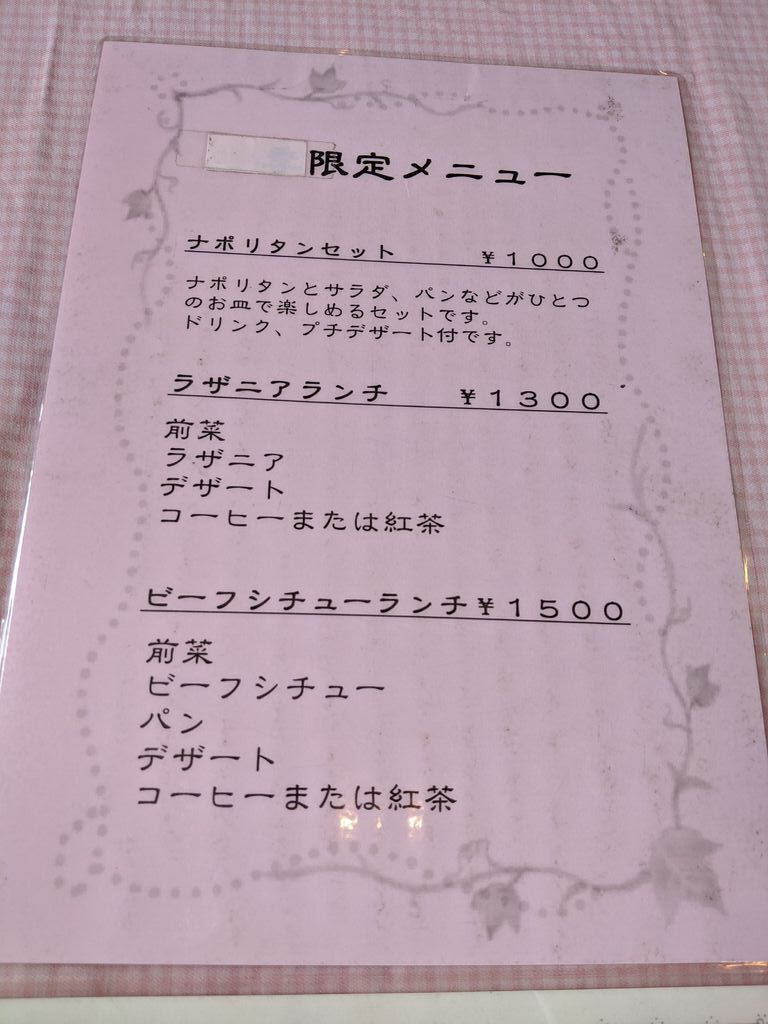 限定メニュー
ナポリタンセット ￥１０００
ナポリタンとサラダ、パンなどがひとつ
のお皿で楽しめるセットです。
ドリンク、プチデザート付です。
ラザニアランチ ￥１３００
前菜
ラザニア
デザート
コーヒーまたは紅茶
ビーフシチューランチ￥１５００
前菜
ビーフシチュー
パン
デザート
コーヒーまたは紅茶